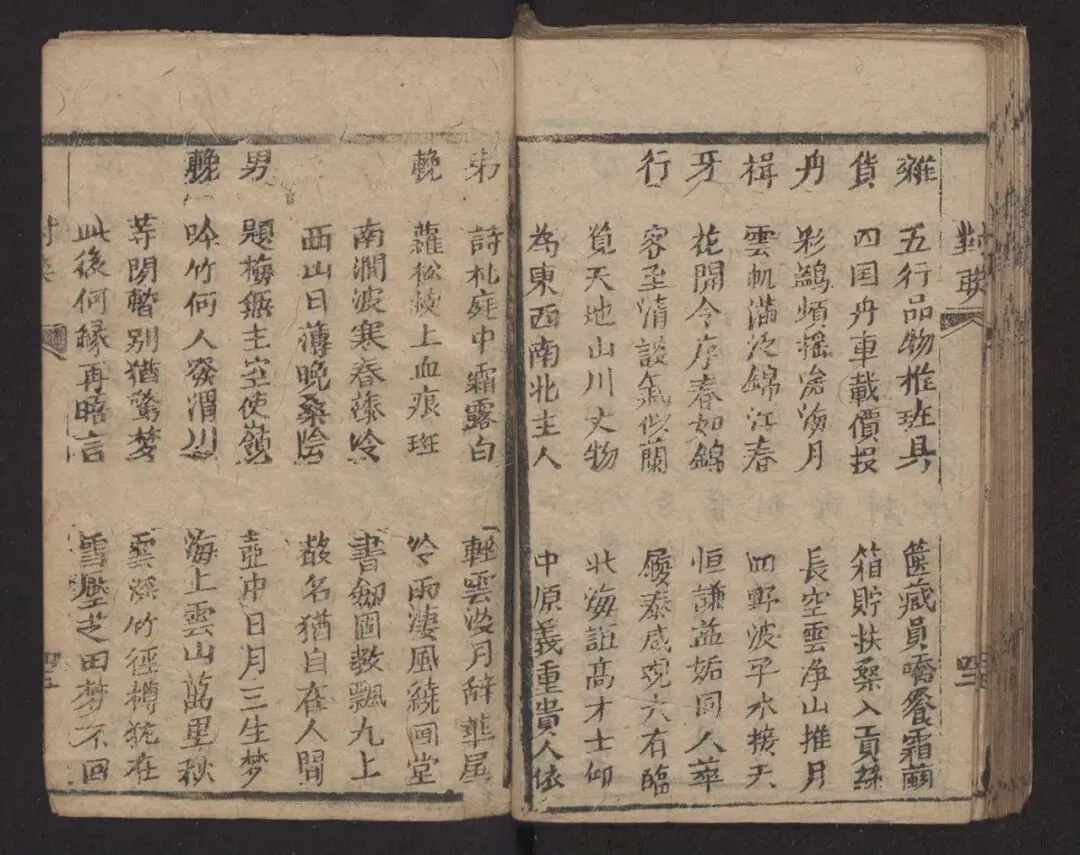 對聯
雜 五行品物推班具 篋藏員嶠餐霜繭
貨 四国舟車載價投 箱貯扶桑入貢絲
舟 彩鷁頻搖滄海月 長空雲净山推月
楫 雲帆滿泛錦江春 四野波平水接天
牙 花開令序春如錦 恒謙益姤同人萃
行 客至清談氣似蘭 履泰咸觀大有臨
筧天地山川文物 北海詎髙才士仰
為東西南北主人 中原義重貴人依
四二
弟 詩札庭中霜露白 輕雲没月辞華屋
輓 蘿松薐上血痕班 冷雨淒風繞画堂
南澗波寒春藻冷 書劒圖教飄九上
西山日薄晚桑陰 故名猶自在人間
男 題梅無主空使嶺 壺中日月三生梦
輓 吟竹何人發渭川 海上雲山萬里秋
等閑暫别猶驚梦 雲深竹徑樽犹在
此後何緣再晤言 雪壓芝田梦不回